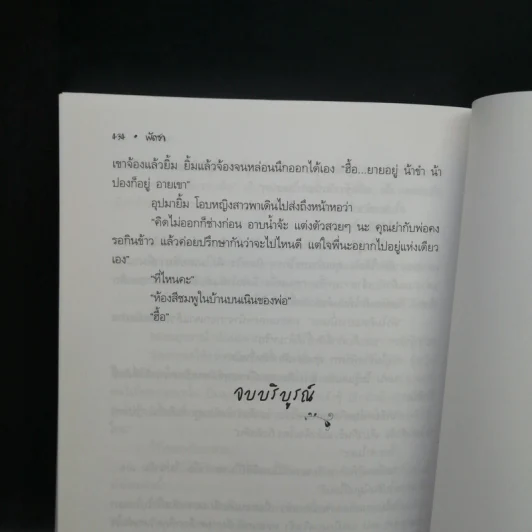 ๔๖๔ • พัดชา
เขาจ้องแล้วยิ้ม ยิ้มแล้วจ้องจนหล่อนนึกออกได้เอง “ฮื้อ...ยายอยู่ น้าชำ น้า
ปองก็อยู่ อายเขา”
อุปมายิ้ม โอบหญิงสาวพาเดินไปส่งถึงหน้าหอว่า
“คิดไม่ออกก็ช่างก่อน อาบน้ำจ้ะ แต่งตัวสวยๆ นะ คุณย่ากับพ่อคง
รอกินข้าว แล้วค่อยปรึกษากันว่าจะไปไหนดี แต่ใจพี่นะอยากไปอยู่แห่งเดียว
เอง”
“ที่ไหนคะ”
“ห้องสีชมพูในบ้านบนเนินของพ่อ”
“ฮื้อ”
จบบริบูรณ์